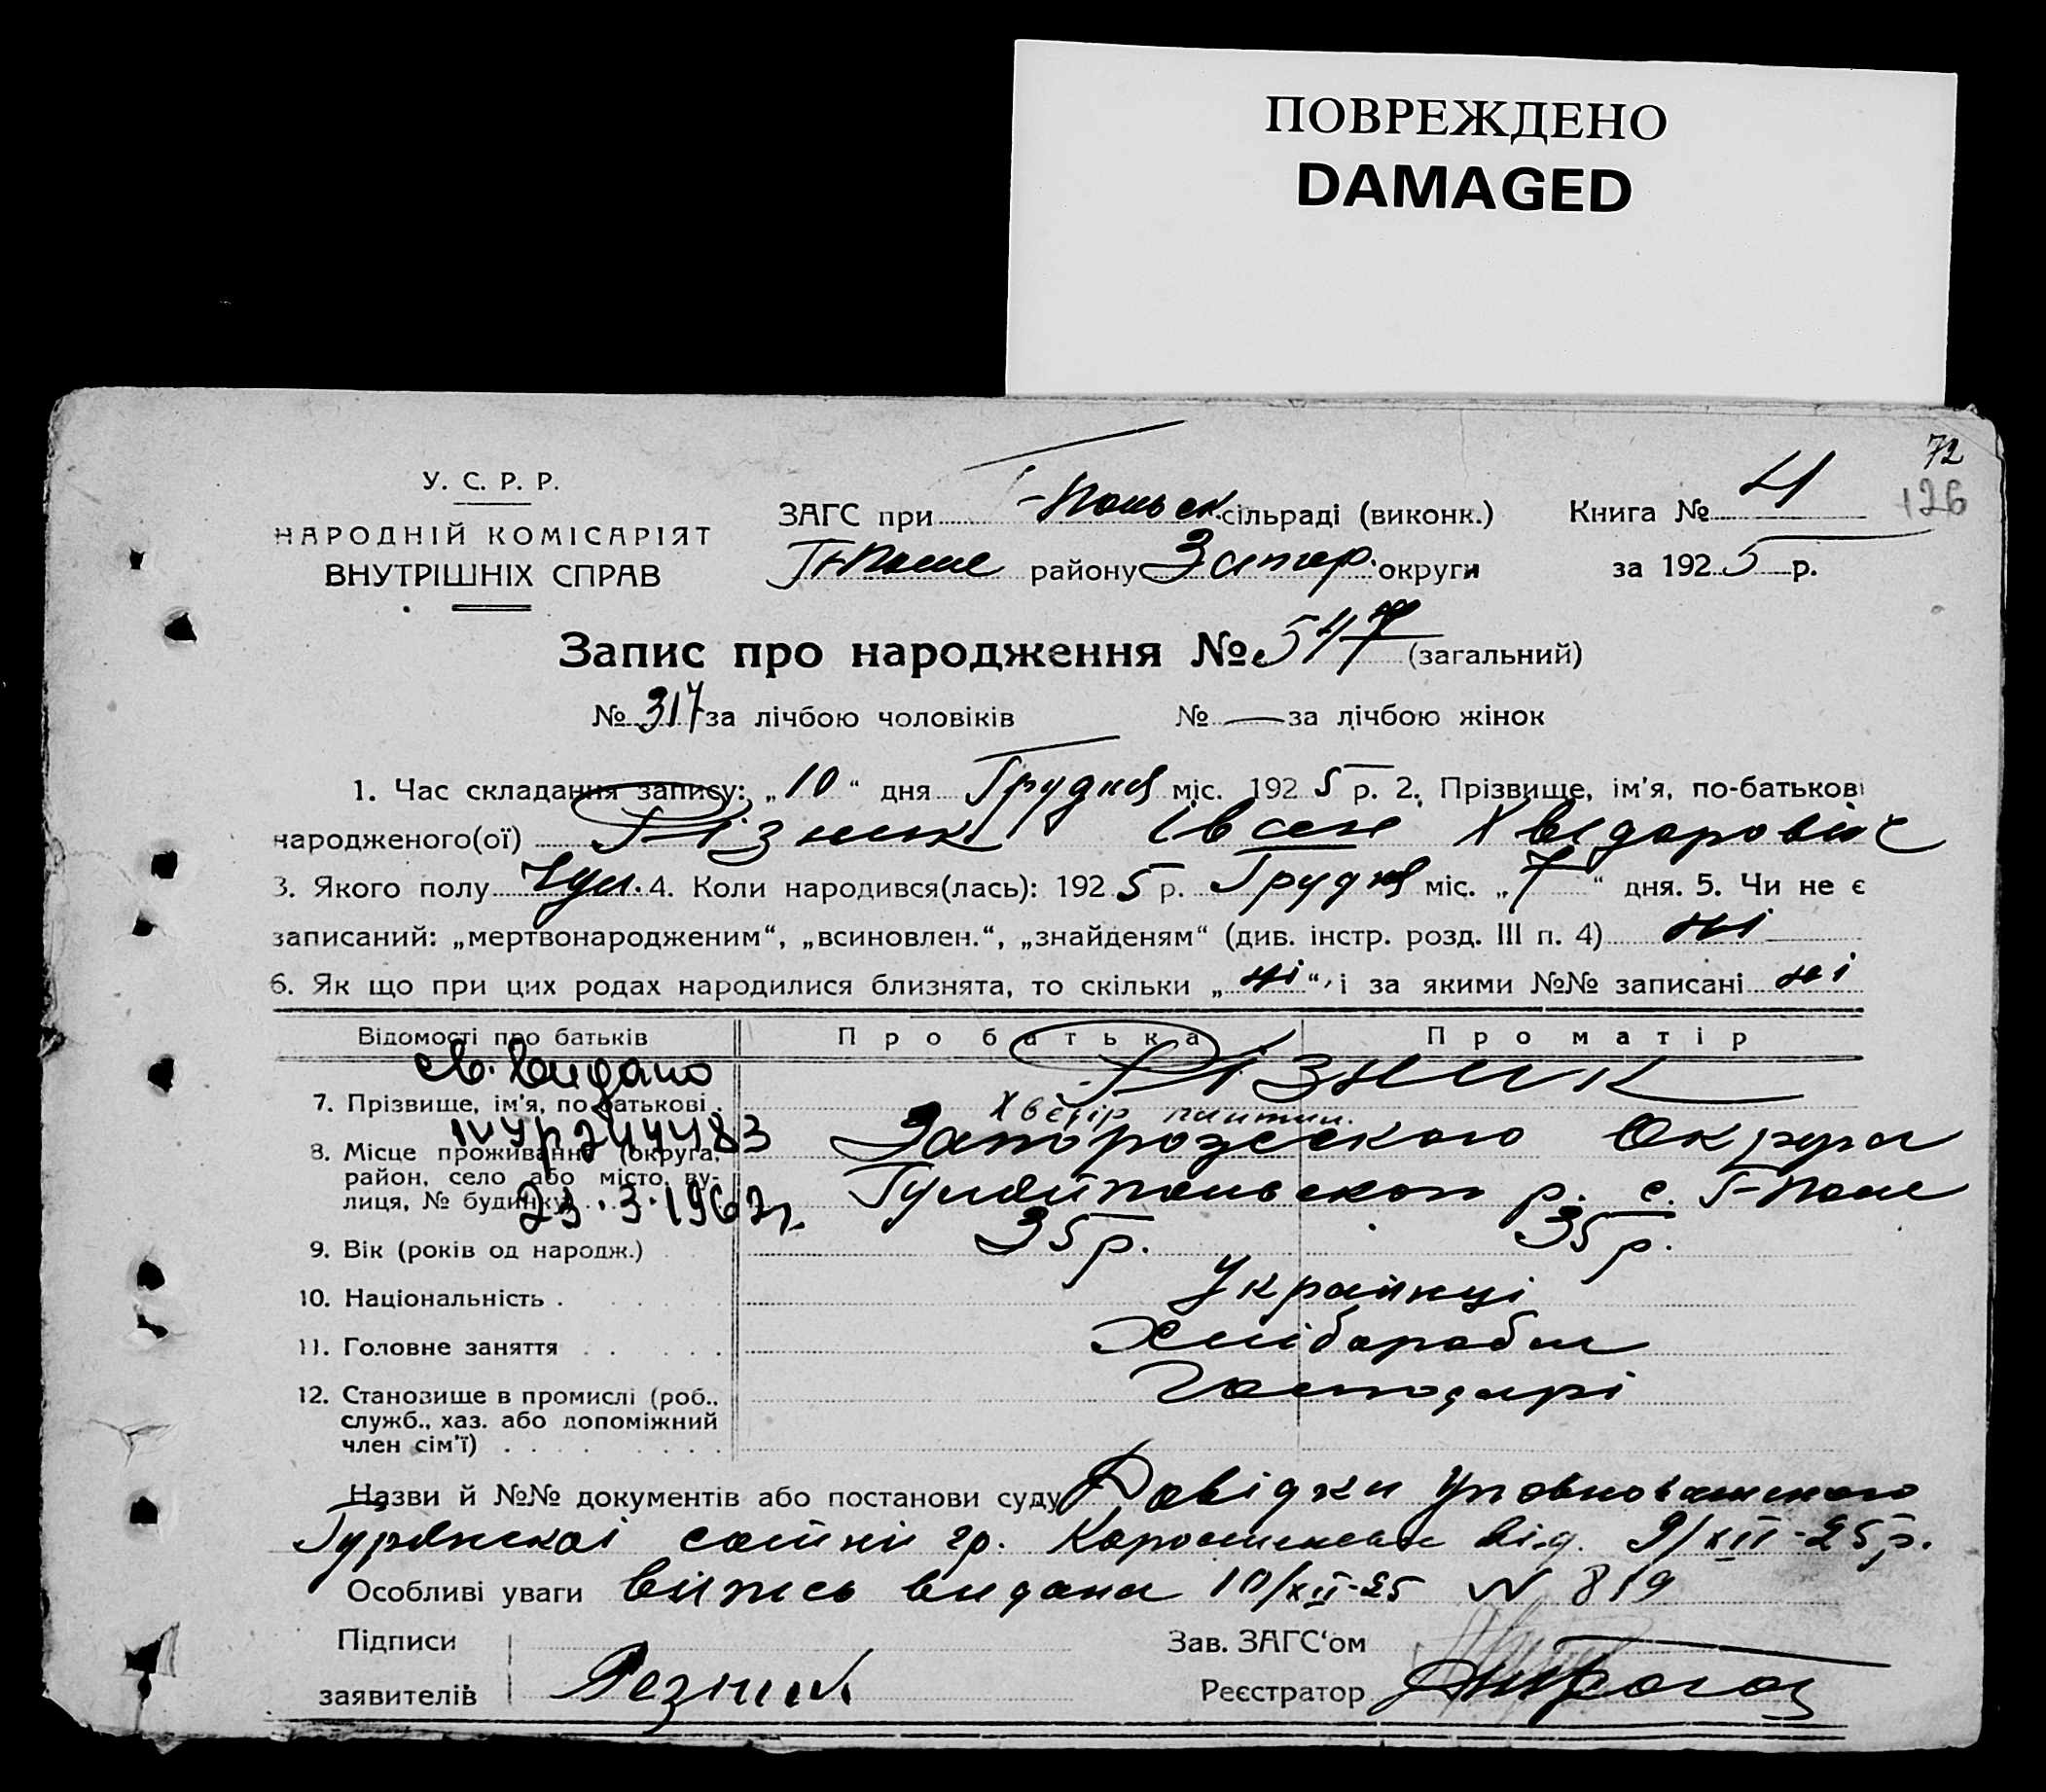 ПОВРЕЖДЕНО
DAMAGED
72
126
У. С. Р. Р.
НАРОДНІЙ КОМІСАРІЯТ
ВНУТРІШНІХ СПРАВ
ЗАГС при Г-Польск сільраді (виконк.) Книга № 4
Г-Поле району Запор. округи за 1925 р.
Запис про народження № 547 (загальний)
№ 317 за лічбою чоловіків № — за лічбою жінок
1. Час складання запису: „10“ дня Грудня міс. 1925 р. 2. Прізвище, ім'я, по-батькові
народженого(ої) Різник Івсей Хведорович
3. Якого полу Чол. 4. Коли народився(лась): 1925 р. Грудня міс. „7“ дня. 5. Чи не є
записаний: „мертвонародженим“, „всиновлен.“, „знайденям“ (див. інстр. розд. III п. 4) ні
6. Як що при цих родах народилися близнята, то скільки „ні“, і за якими №№ записані ні
Відомості про батьків Про батька Про матір
св. видано
Різник
7. Прізвище, ім'я, по-батькові
Хведір
IV УР 244483
8. Місце проживання (округа, Запорожского Округи
район, село або місто, ву-
лиця, № будинку) Гуляйпольского р. с. Г-Поле
23.3.1962г.
9. Вік (років од народж.) 35 р. 35 р.
10. Національність . Українці
11. Головне заняття . . Хлібороби
12. Становище в промислі (роб., Господарі
служб., хаз. або допоміжний
член сім'ї) . . . .
Назви й №№ документів або постанови суду Довідки Уповноваженого
сотні гр. від 9/XII-25 р.
Особливі уваги Витись видана 10/XII-25 N 819
Підписи Зав. ЗАГС'ом
заявителів Резник Реєстратор